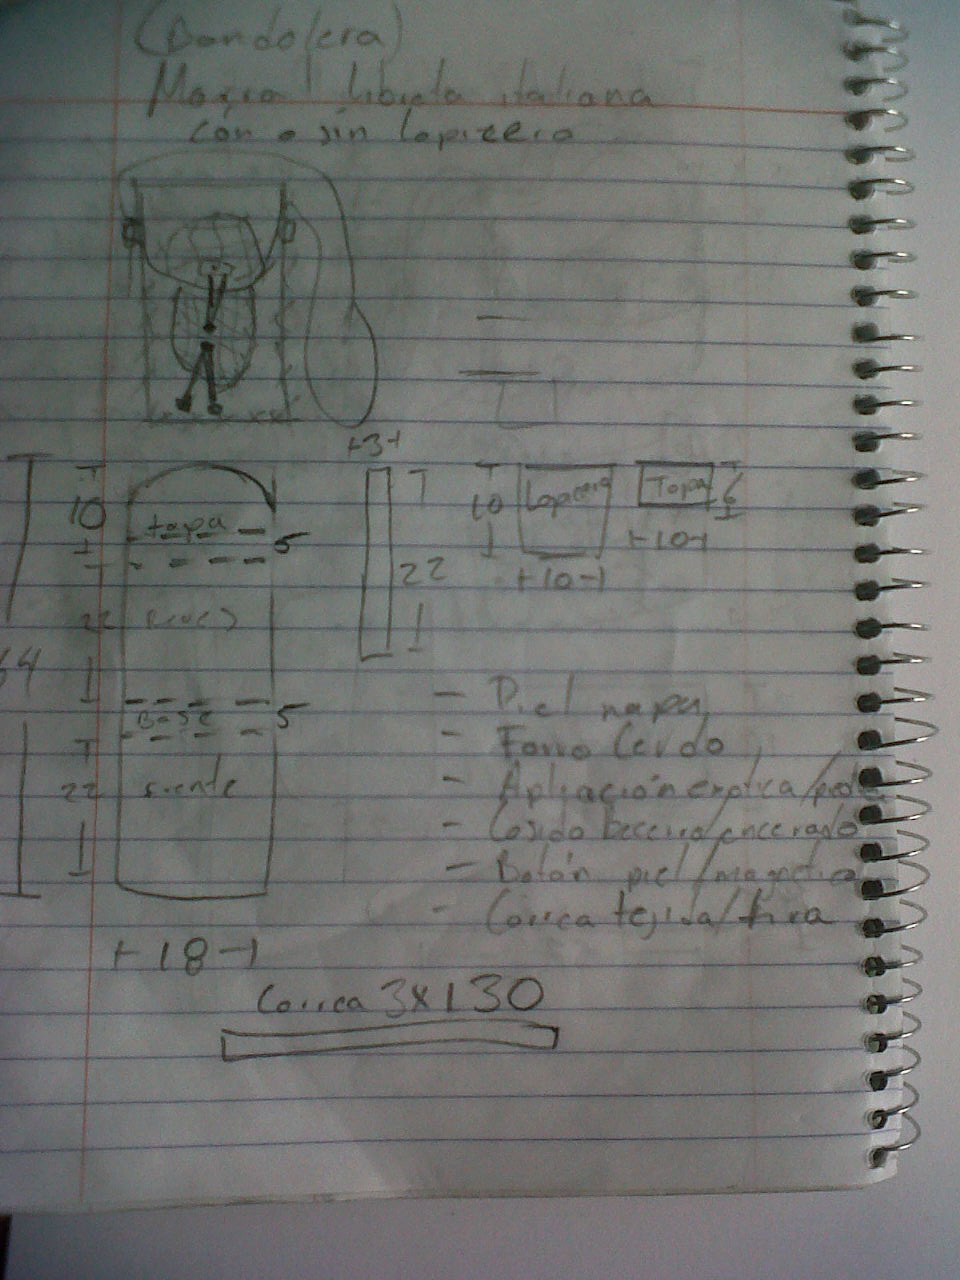 (Bandolera)
libreta italiana
con o sin lapicero
+3+
10
tapa
5
22
64
Base
5
22
frente
+18-1
22
10
Lapicero
+10-1
Tapa
6
+10-1
- Piel napa
- Forro Cerdo
- Apliación exotica/
- Cosido becerro/encerado
- Botón piel/magnetico
- Correa tejida/tira
Correa 3x130